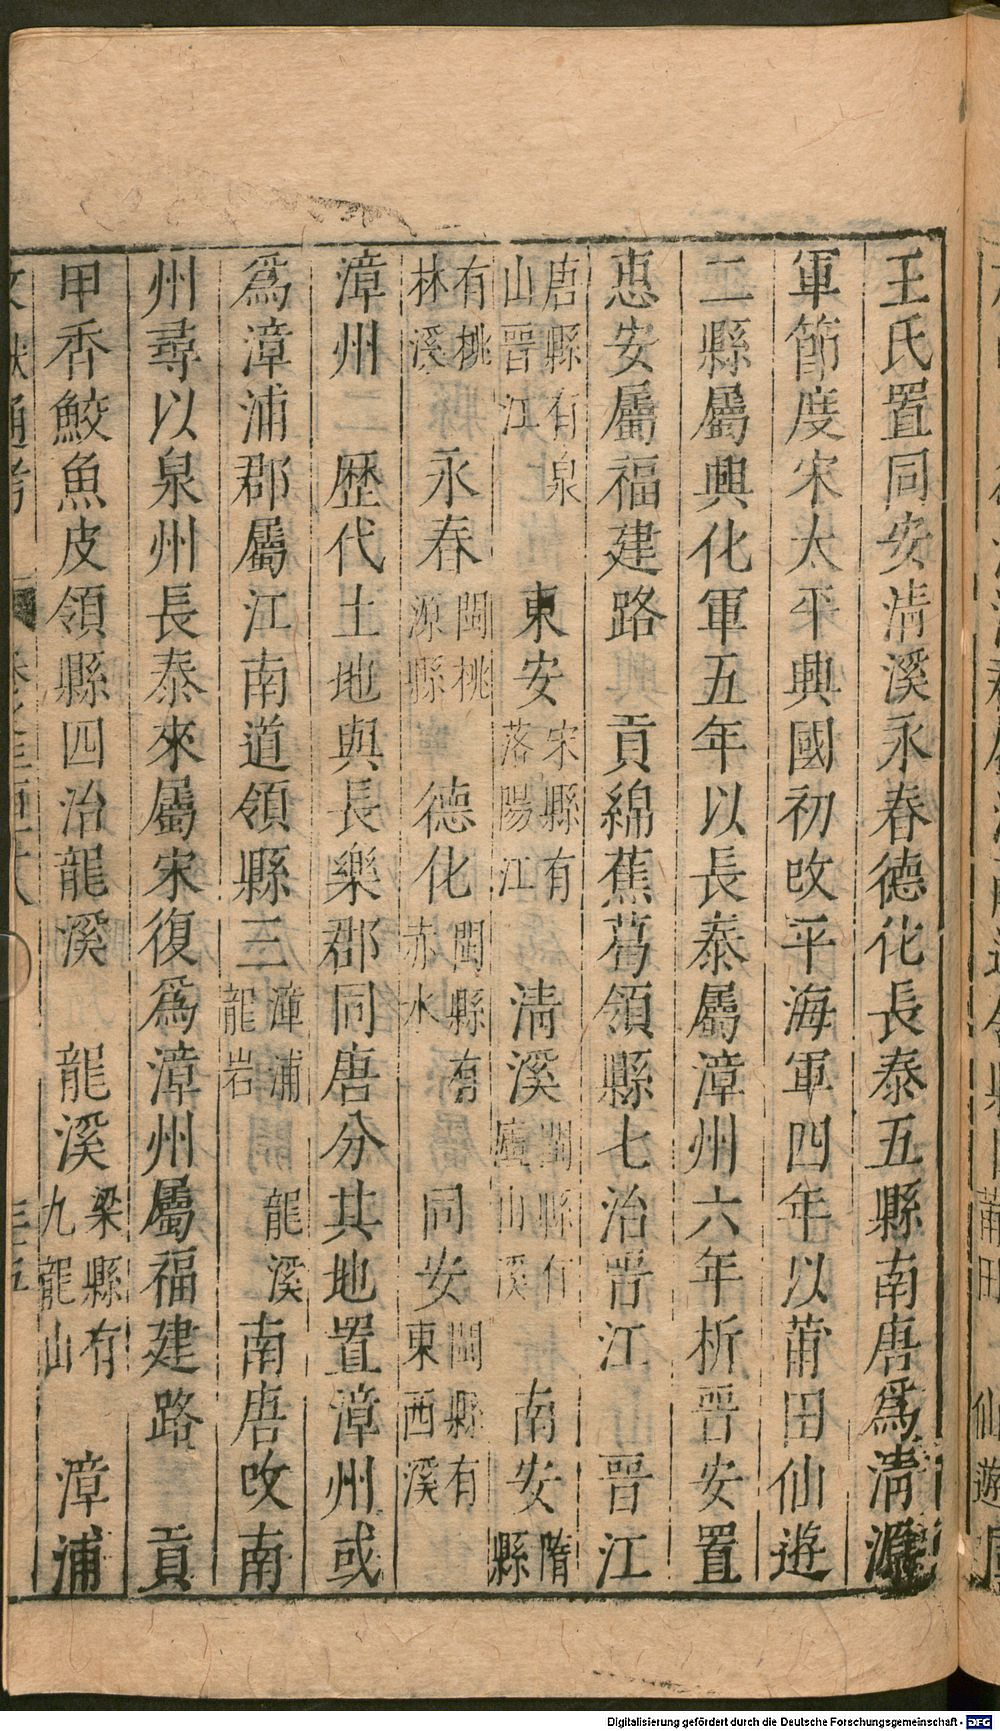 王氏置同安清溪永春德化長泰五縣南唐爲清源
軍節度宋太平興國初改平海軍四年以莆田仙遊
二縣屬興化軍五年以長泰屬漳州六年析晉安置
惠安屬福建路 貢綿蕉葛領縣七治晉江 晉江
唐縣有泉山晉江 東安 宋縣有落陽江 清溪 閩縣有廬山溪 南安 隋縣
有桃林溪 永春 閩桃源縣 德化 閩縣有赤水 同安 閩縣有東西溪
漳州 二 歷代土地與長樂郡同唐分其地置漳州或
爲漳浦郡屬江南道領縣三 漳浦 龍岩 龍溪 南唐改南
州尋以泉州長泰來屬宋復爲漳州屬福建路 貢
甲香鮫魚皮領縣四治龍溪 龍溪 梁縣有九龍山 漳浦
通考
Digitalisierung gefördert durch die Deutsche Forschungsgemeinschaft - DFG